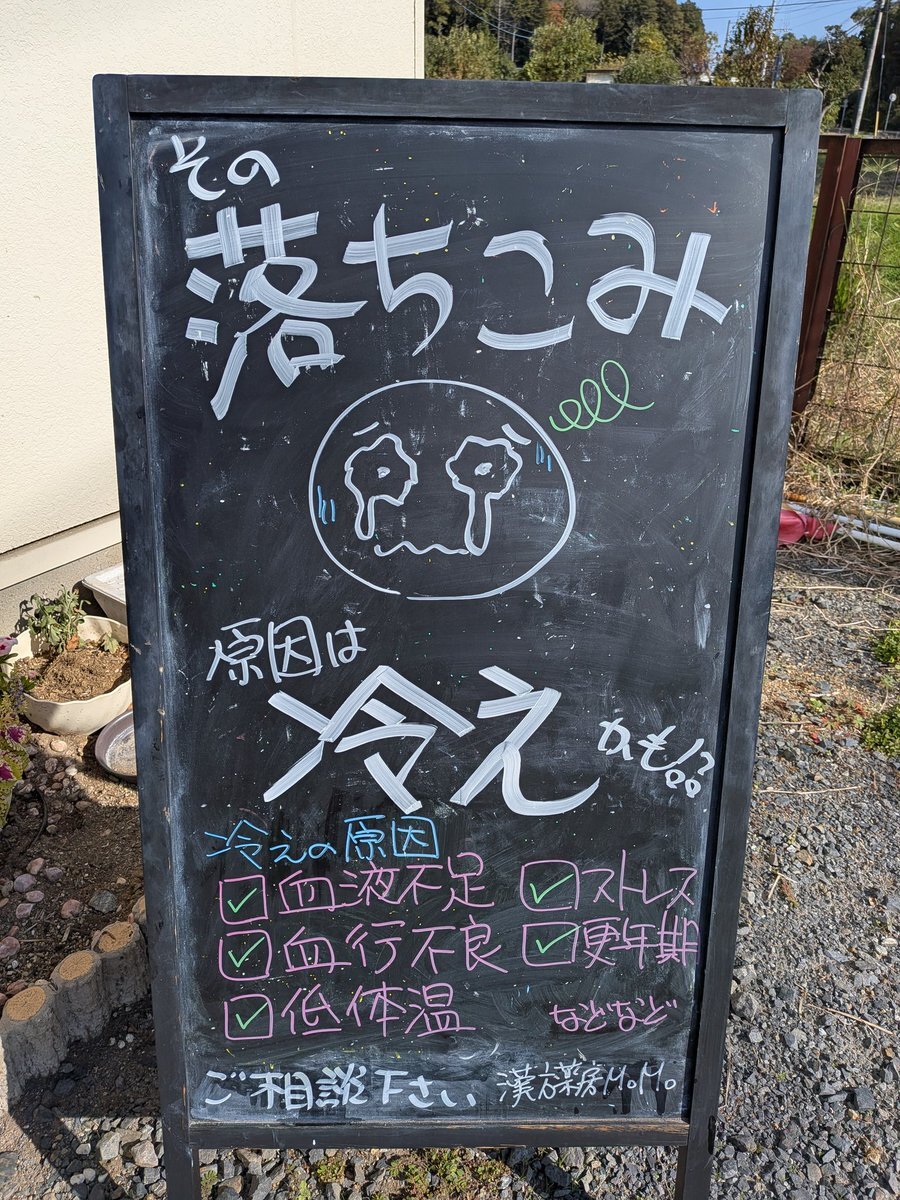 その
落ちこみ
原因は
冷え
かも!?
冷えの原因
血液不足 ストレス
血行不良 更年期
低体温 などなど
ご相談下さい 漢方薬房M.M.